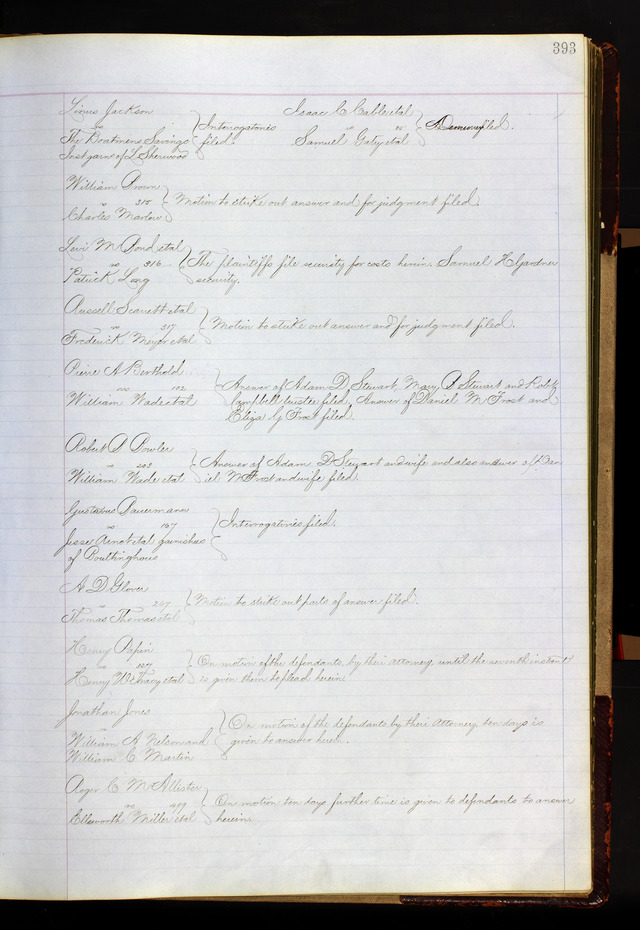 393
Linus Jackson
vs
The Boatmens Savings
Inst garn of L Sherwood
Interrogatories
filed.
Isaac C Cable etal
vs 80
Samuel Gaty etal
Demurrer filed.
William Brown
vs 315
Charles Marlow
Motion to strike out answer and for judgment filed.
Levi M Pond etal
vs 316
Patrick Long
The plaintiffs file security for costs herein. Samuel H Gardner
security.
Russell Scarett etal
vs 317
Frederick Meyer etal
Motion to strike out answer and for judgment filed.
Pierre A Berthold
vs 102
William Wade etal
Answer of Adam D Stewart, Mary A Stewart and Robt
Campbell trustee filed, Answer of Daniel M Frost and
Eliza G Frost filed.
Robert D Powler
vs 203
William Wade etal
Answer of Adam D Stewart and wife and also answer of Dan
iel M Frost and wife filed.
Gustavus Bauermann
vs 167
Jesse Arnot etal garnishees
of Poultinghous
Interrogatories filed.
A. D. Glover
vs 247
Thomas Thomas etal
Motion to strike out parts of answer filed.
Henry Papin
vs 124
Henry W. Thacy etal
On motion of the defendants, by their attorney, until the seventh instant
is given them to plead herein
Jonathan Jones
vs
William A Nelson and
William C Martin
On motion of the defendants by their Attorney, ten days is
given to answer herein.
Roger C McAllister
vs 499
Ellsworth Miller etal
On motion ten days further time is given to defendants to answer
herein.